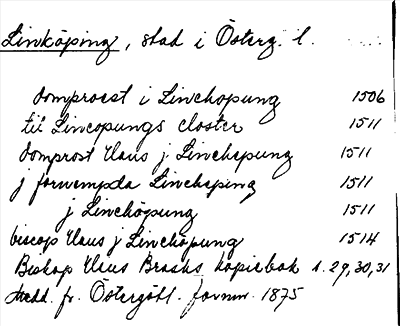 Linköping, stad i Österg. l.
domproest i Linchopung 1506
til Lincopungs closter 1511
domprost Haus j Linchepung 1511
j fornempda Lincheping 1511
j Linchöpung 1511
biscop Haus j Linchöpung 1514
Biskop Haus Brasks kopiebok s. 29,30,31
Medd. fr. Östergötl. fornm. 1875